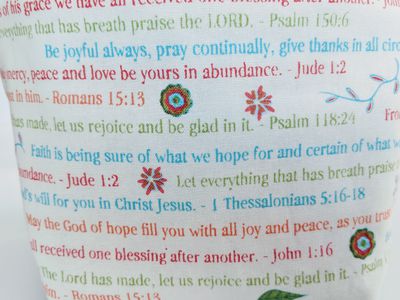 of his grace we have all received one blessing after another. - John
everything that has breath praise the LORD. - Psalm 150:6
Be joyful always, pray continually, give thanks in all circ
mercy, peace and love be yours in abundance. - Jude 1:2
in him. - Romans 15:13
Fro
has made, let us rejoice and be glad in it. - Psalm 118:24
Faith is being sure of what we hope for and certain of what w
undance. - Jude 1:2 Let everything that has breath praise
d's will for you in Christ Jesus. - 1 Thessalonians 5:16-18
May the God of hope fill you with all joy and peace, as you trust
all received one blessing after another. - John 1:16
The Lord has made, let us rejoice and be glad in it. - Psalm
him. - Romans 15:13